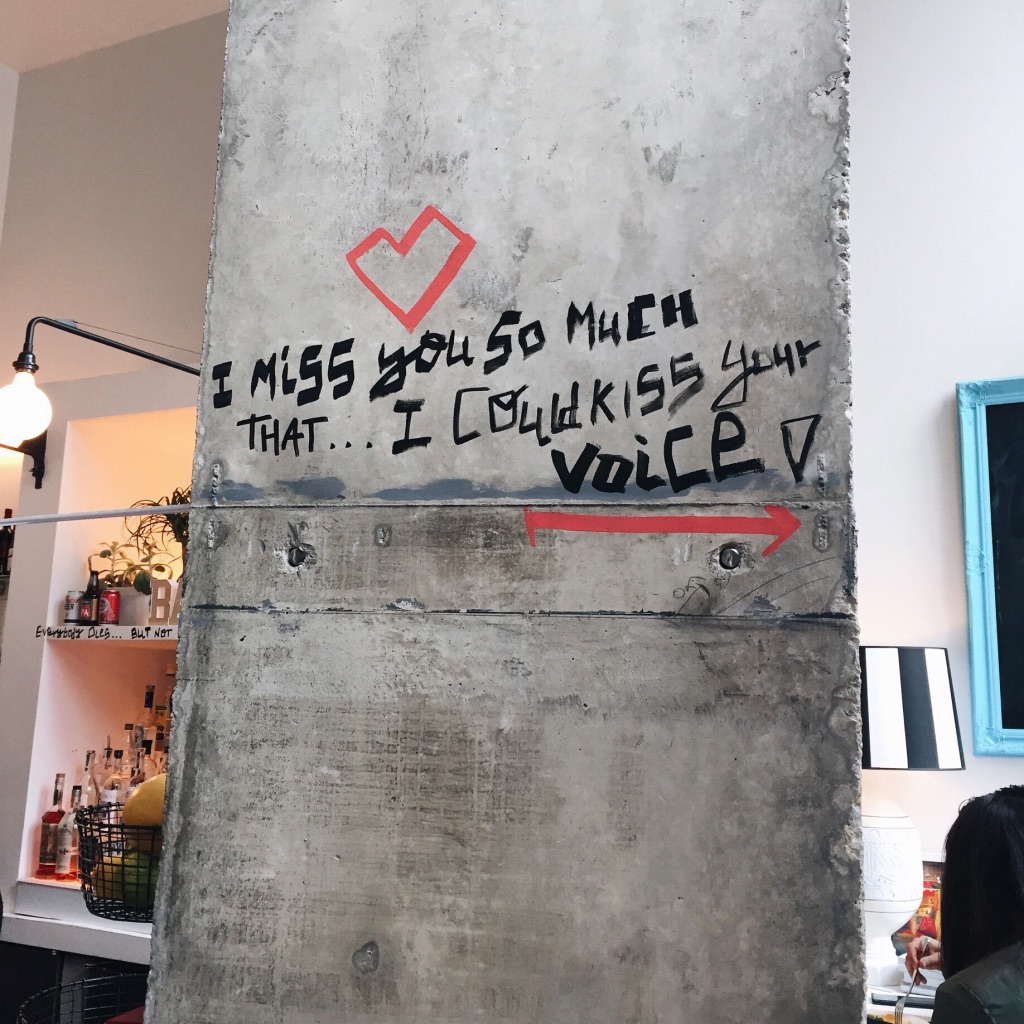 I MiSS you So MuCH
THAT... I Could KiSS your
VoiCe
BA
Everybody Dies... BUT NOT